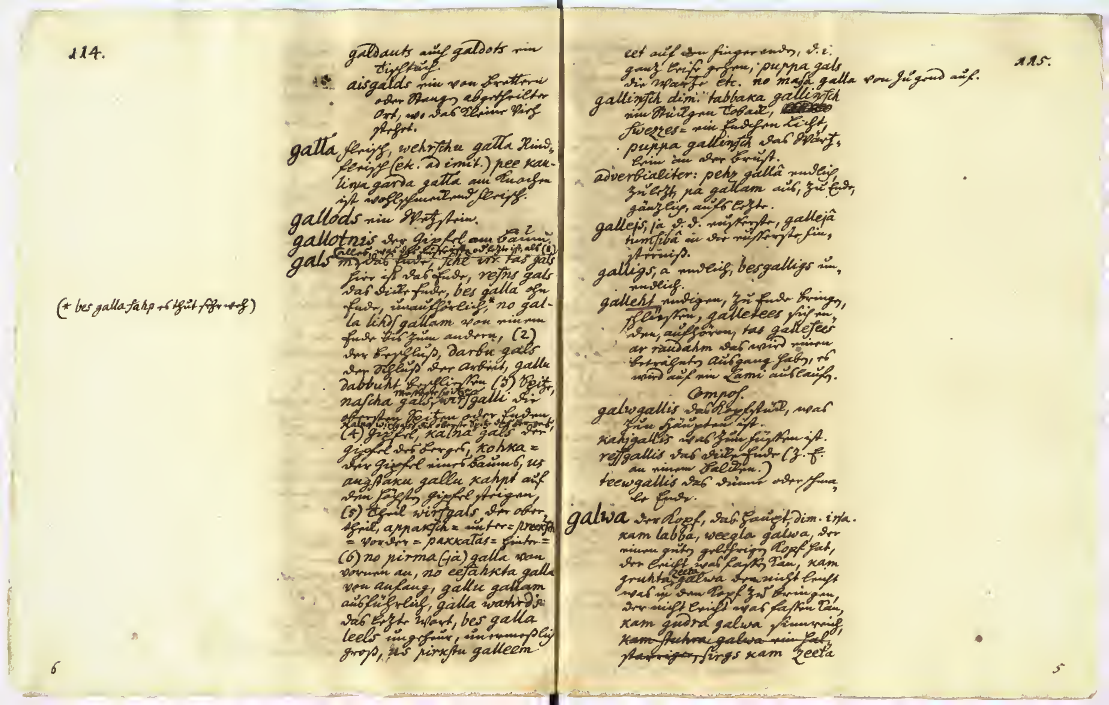 114.
galdauts auch galdots ein
Tischtuch.
aisgalds ein von Brettern
oder Stangen abgetheilter
Ort, wo das kleine Vieh
stehet.
galla Fleisch, wehrschu galla Rind-
fleisch (etc. ad imit.) pee kau-
lina garda galla am Knochen
ist wohlschmeckend Fleisch.
gallods ein Wetzstein.
gallotnis der Gipfel am Baum.
gals das Ende, tas gals
hier ist das Ende, resns gals
das dicke Ende, bes galla ohn
Ende, unaufhörlich,* no gal-
la lihds gallam von einem
Ende bis zum andern, (2)
der Beschluß, darbu gals
der Schluß der Arbeit, gallu
dabbuht beschliessen (3) Spitze,
nascha gals, wirsgalli die
obersten Spitzen oder Enden,
(4) Gipfel, kalna gals der
Gipfel des Berges, kohka =
der Gipfel eines Baums, us
augstaku gallu kahpt auf
den höchsten Gipfel steigen,
(5) Theil wirsgals der ober-
theil, appaksch = unter = preeksch
= vorder = pakkalas = hinter =
(6) no pirma (-ja) galla von
vornen an, no eesahkta galla
von Anfang, gallu gallam
ausführlich, galla wahrds
das letzte Wort, bes galla
leels ungeheur, unermeßlich
groß, us pirkstu galleem
(* bes galla sahp es thut sehr weh)
6
115.
eet auf den Fingerenden, d. i.
ganz leise gehen, puppa gals
die Wartze etc. no masa galla von Jugend auf.
gallinsch dim. tabbaka gallinsch
ein Stückgen Toback,
swezzes = ein Endchen Licht,
puppa gallinsch das Wärz-
lein an der Brust.
adverbialiter: pehz gallâ endlich
zuletzt, pa gallam aus, zu Ende,
gänzlich, aufs letzte.
gallejs, ja d. d. äusserste, gallejâ
tumsibâ in der äusserste Fin-
sterniß.
galligs, a endlich, besgalligs un-
endlich.
galleht endigen, zu Ende bringen,
schliessen, galletees sich en-
den, aufhören, tas gallesees
ar raudahm das wird einen
betrübten Ausgang haben, es
wird auf ein Lami auslaufen.
Compos.
galwgallis das Kopfstück, was
zun Häupten ist.
kahjgallis was zun Füssen ist.
resgallis das dicke Ende (z. E.
an einem Balcken.)
teewgallis das dünne oder schma-
le Ende.
galwa der Kopf, das Haupt, dim. ina.
kam labba, weegla galwa, der
einen guten gelehrigen Kopf hat,
der leicht was fassen kan, kam
gruhta galwa dem nicht leicht
was in den Kopf zu bringen,
der nicht leicht was fassen kan,
kam gudra galwa sinnreich,
kam stuhra galwa ein hals-
starriger, sirgs kam zeeta
5